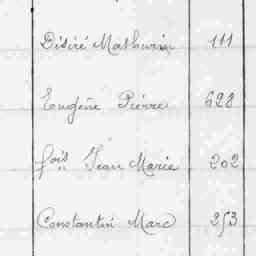 Désiré Mathurin 111
Eugène Pierre 628
fois Jean Marie 202
Constantin Marc 253